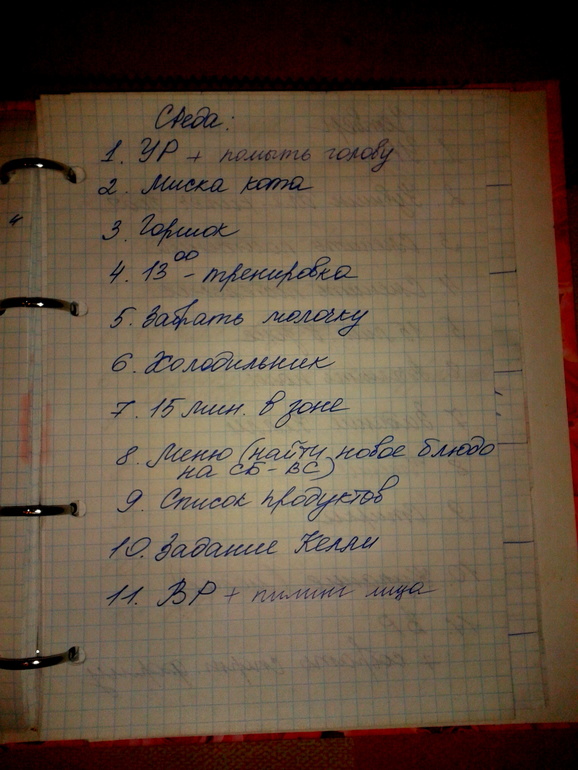 Среда:
1. УР + помыть голову
2. Миска кота
3. Горшок
4. 13⁰⁰ - тренировка
5. Забрать молочку
6. Холодильник
7. 15 мин. в зоне
8. Меню (найти новое блюдо
на СБ-ВС)
9. Список продуктов
10. Задание Келли
11. ВР + пилинг лица